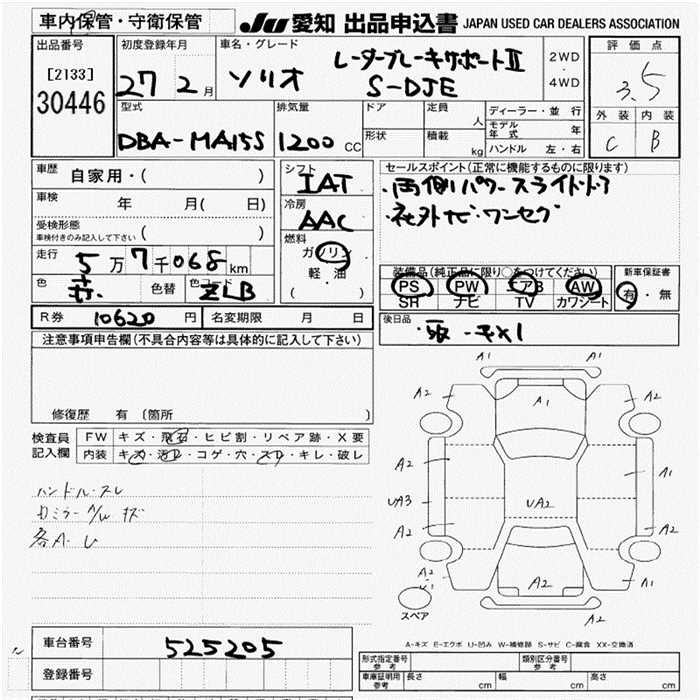 車内保管・守衛保管 JU愛知 出品申込書 JAPAN USED CAR DEALERS ASSOCIATION
出品番号 [2133] 30446
初度登録年月 27 2月
車名・グレード ソリオ レーダーブレーキサポートⅡ S-DJE
2WD ・ 4WD
評価点 3.5
外装 C 内装 B
型式 DBA-MA15S
排気量 1200 CC
ドア 形状
定員 人
積載 kg
ディーラー・並行
モデル年式 年
ハンドル 左・右
車歴 自家用・( )
車検 年 月( 日)
受検形態 車検付きのみ記入して下さい ( )
走行 5万7千068km
色 色替 色コード ZLB
シフト IAT
冷房 AAC
燃料 ガソリン 軽・油 ( )
セールスポイント(正常に機能するものに限ります)
・両側パワースライドドア
・社外ナビ・ワンセグ
装備品(純正品に限り○をつけてください)
PS PW エアB AW
SR ナビ TV カワシート
新車保証書 有・無
R券 10620円 名変期限 月 日
後日品
注意事項申告欄(不具合内容等は具体的に記入して下さい)
修復歴 有 〔箇所 〕
検査員記入欄
FW キズ・飛石・ヒビ割・リペア跡・X要
内装 キズ・汚れ・コゲ・穴・スレ・キレ・破レ
ハンドル・スレ
各A・U
A1 A1
A2 A1 A2
A2 A1
UA3 UA2
A2 A2
A2 A2 A1
スペア A2
A-キズ E-エクボ U-凹み W-補修跡 S-サビ C-腐食 XX-交換済
車台番号 525205
登録番号
形式指定番号 参考 類別区分番号 参考
車庫証明用 参考 長さ cm 幅 cm 高さ cm